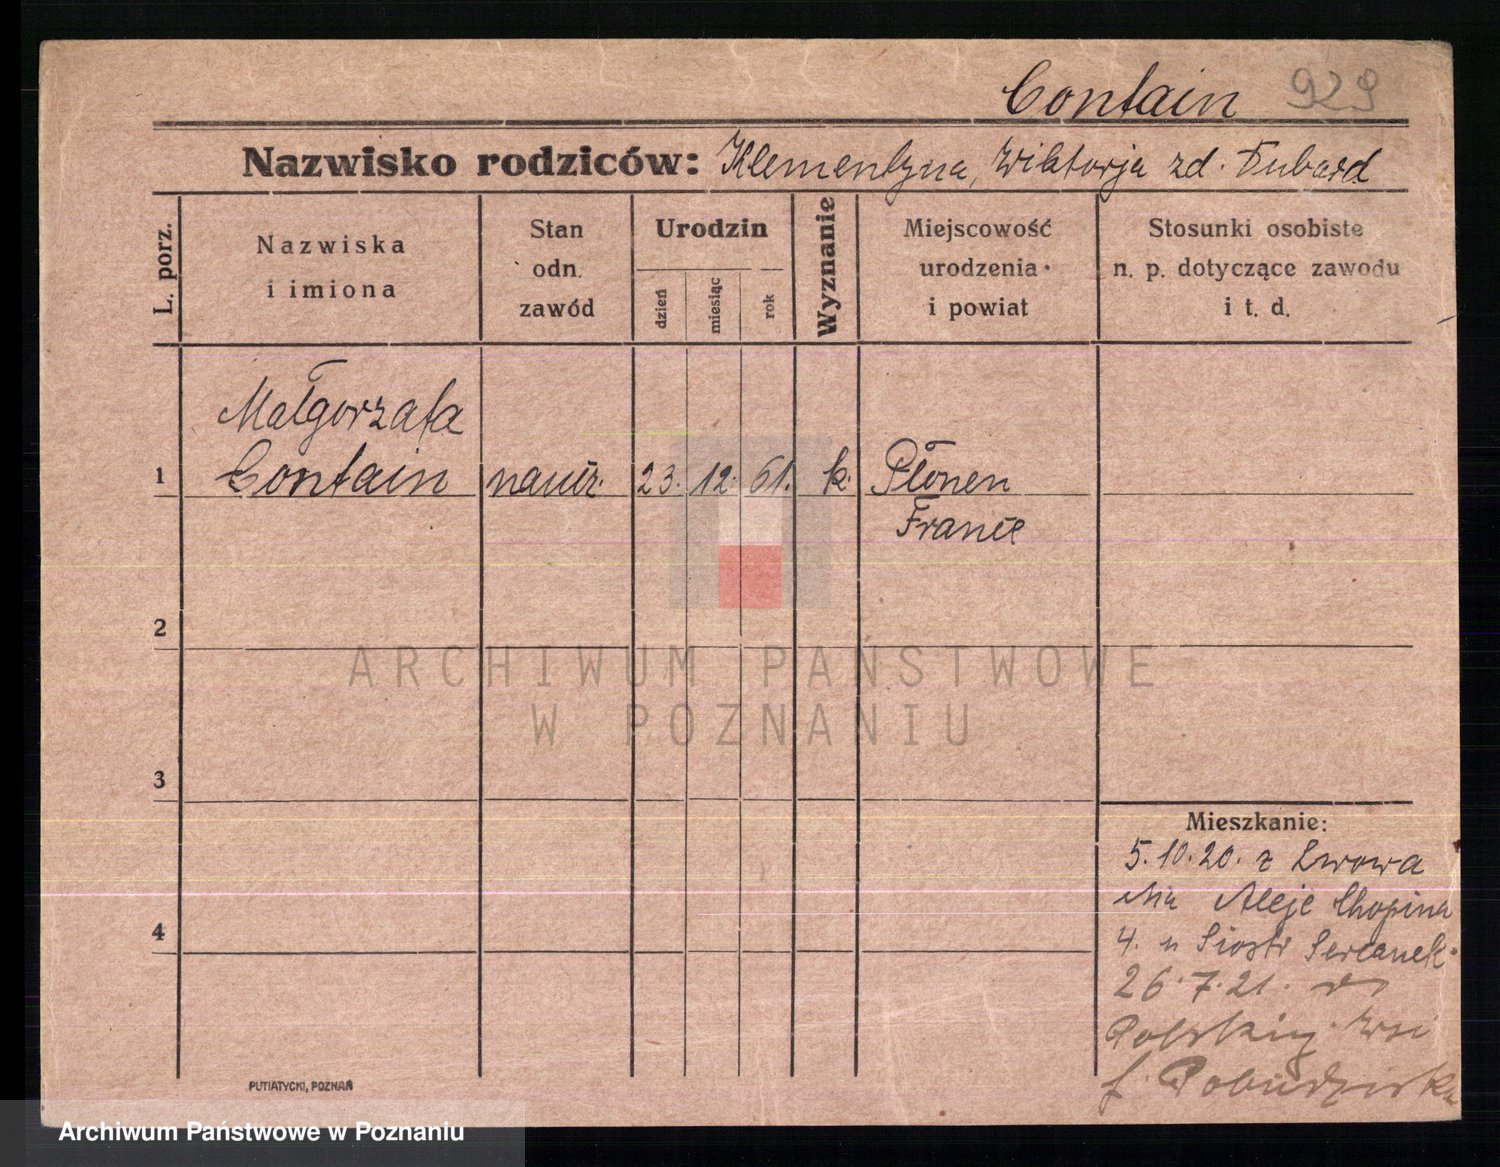 Contain 929
Nazwisko rodziców: Klementyna, Wiktorja zd. Dubard
L. porz.
Nazwiska
i imiona
Stan
odn.
zawód
Urodzin
dzień
miesiąc
rok
Wyznanie
Miejscowość
urodzenia
i powiat
Stosunki osobiste
n. p. dotyczące zawodu
i t. d.
Małgorzata
1 Contain naucz. 23. 12. 61. k. Płonen
2
3
4
Mieszkanie:
5.10.20. z Lwowa
Na Aleje Chopina
4. u Siostr Sercanek
26.7.21. do
Polskiej Wsi
Pobiedziska
PUTIATYCKI, POZNAŃ
ARCHIWUM PAŃSTWOWE
W POZNANIU
Archiwum Państwowe w Poznaniu